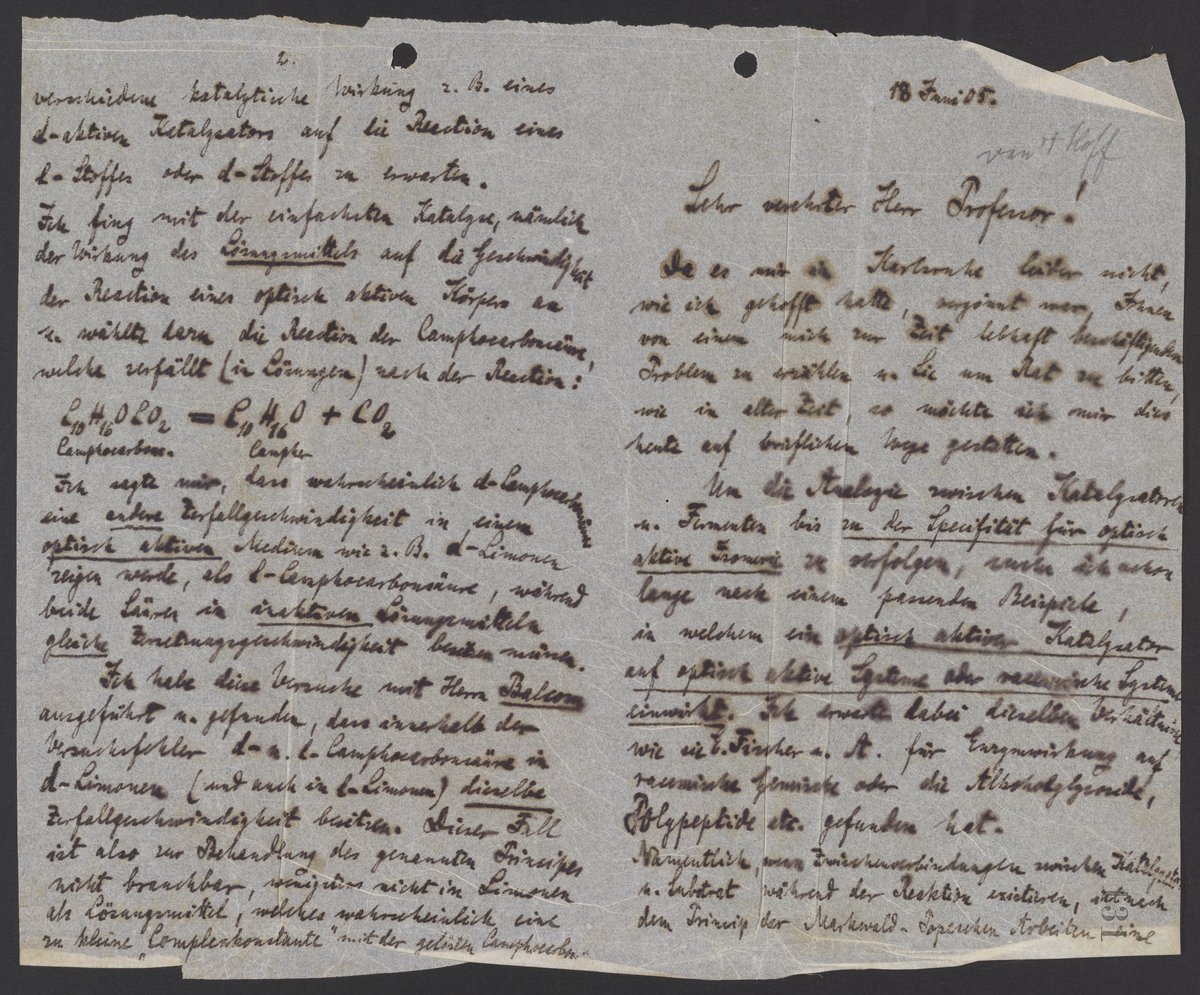 18 Juni 05.
van 't Hoff
Sehr verehrter Herr Professor!
Da es mir in Karlsruhe leider nicht,
wie ich gehofft hatte, vergönnt war, Ihnen
von einem mich zur Zeit lebhaft beschäftigenden
Problem zu erzählen u. Sie um Rat zu bitten,
wie in alter Zeit, so möchte ich mir dies
heute auf brieflichem Wege gestatten.
Um die Analogie zwischen Katalysatoren
u. Fermenten bis zu der Specifität für optisch
aktive Isomerie zu verfolgen, suche ich schon
lange nach einem passenden Beispiele,
in welchem ein optisch aktiver Katalysator
auf optisch aktive Systeme oder racemische Systeme
einwirkt. Ich erwarte dabei dieselben Verhältnisse
wie sie E. Fischer u. A. für Enzymwirkung auf
racemische Gemische oder die Alkoholglycoside,
Polypeptide etc. gefunden hat.
Namentlich, wenn Zwischenverbindungen zwischen Katalysator
u. Substrat während der Reaktion existieren, ist nach
dem Princip der Markwald-Popeschen Arbeiten eine
131
2.
verschiedene katalytische Wirkung z. B. eines
d-aktiven Katalysators auf die Reaction eines
l-Stoffes oder d-Stoffes zu erwarten.
Ich fing mit der einfachsten Katalyse, nämlich
der Wirkung des Lösungsmittels auf die Geschwindigkeit
der Reaction eines optisch aktiven Körpers an
u. wählte dazu die Reaction der Camphocarbonsäure,
welche zerfällt (in Lösungen) nach der Reaction:
C10H16OCO2 = C10H16O + CO2
Camphocarbons. Campher
Ich sagte mir, dass wahrscheinlich d-Camphocarbonsäure
eine andere Zerfallgeschwindigkeit in einem
optisch aktiven Medium wie z. B. d-Limonen
zeigen werde, als l-Camphocarbonsäure, während
beide Säuren in inaktiven Lösungsmitteln
gleiche Zersetzungsgeschwindigkeit besitzen müssen.
Ich habe diese Versuche mit Herrn Balcom
ausgeführt u. gefunden, dass innerhalb der
Versuchsfehler d- u. l-Camphocarbonsäure in
d-Limonen (und auch in l-Limonen) dieselbe
Zerfallgeschwindigkeit besitzen. Dieser Fall
ist also zur Behandlung des genannten Principes
nicht brauchbar, wenigstens nicht in Limonen
als Lösungsmittel, welches wahrscheinlich eine
zu kleine "Complexkonstante" mit der gelösten Camphocarbon-